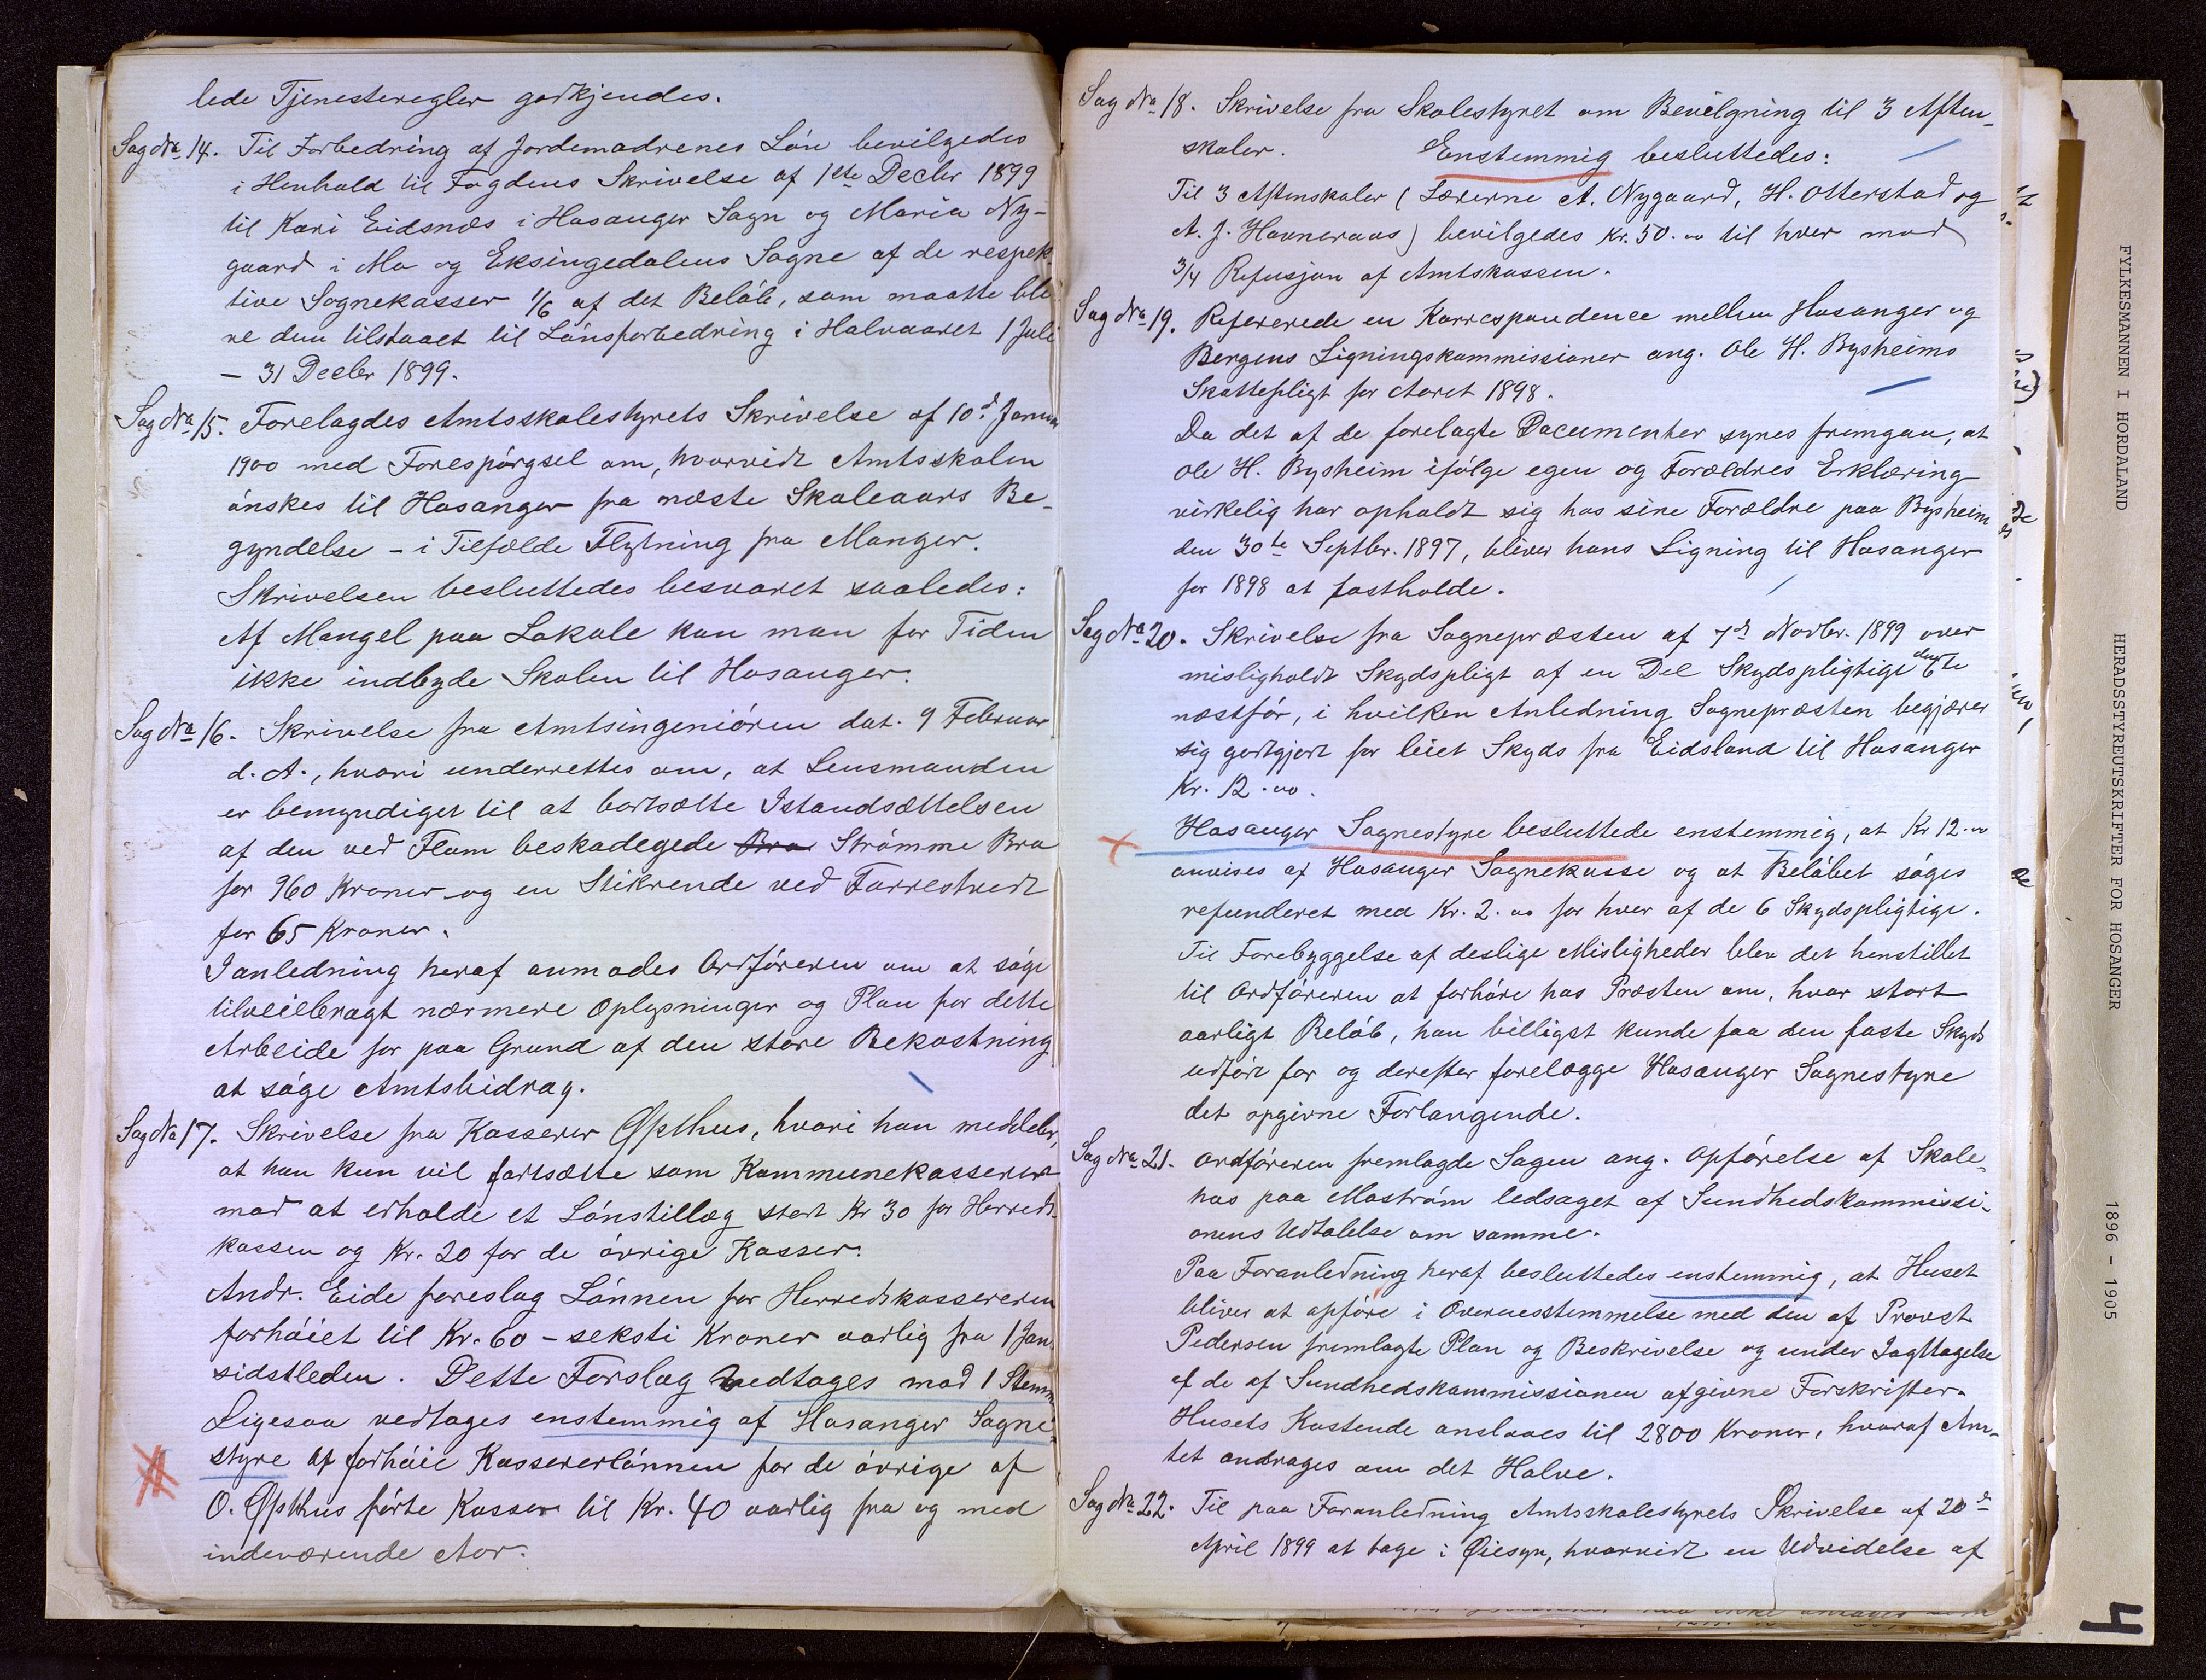 lede Tjenesteregler godkjendes.
Sag No 14. Til Forbedring af Jordemødrenes Lön bevilgedes
i Henhold til Fogdens Skrivelse af 1ste Decbr 1899
til Kari Eidsnes i Hosanger Sogn og Maria Ny-
gaard i Mo og Eksingedalens Sogne af de respek-
tive Sognekasser 1/6 af det Belöb, som maatte bli-
ve dem tilstaaet til Lönsforbedring i Halvaaret 1 Juli
- 31 Decbr 1899.
Sag No 15. Forelagdes Amtsskolestyrets Skrivelse af 10d Januar
1900 med Forespörgsel om, hvorvidt Amtsskolen
önskes til Hosanger fra næste Skoleaars Be-
gyndelse - i Tilfælde Flytning fra Manger.
Skrivelsen besluttedes besvaret saaledes:
Af Mangel paa Lokale kan man for Tiden
ikke indbyde Skolen til Hosanger.
Sag No 16. Skrivelse fra Amtsingeniören dat. 9 Februar
d. A., hvori underrettes om, at Lensmanden
er bemyndiget til at bortsætte Istandsættelsen
af den ved Flom beskadegede Bro Strömme Bro
for 960 Kroner og en Stikrende ved Farrestvedt
for 65 Kroner.
I anledning heraf anmodes Ordföreren om at söge
tilveiebragt nærmere Oplysninger og Plan for dette
Arbeide for paa Grund af den store Bekostning
at söge Amtsbidrag.
Sag No 17. Skrivelse fra Kasserer Øpthus, hvori han meddeler,
at han kun vil fortsætte som Kommunekasserer
mod at erholde et Lönstillæg stort Kr 30 for Herreds-
kassen og Kr. 20 for de övrige Kasser.
Andr. Eide foreslog Lönnen for Herredskassereren
forhöiet til Kr. 60 - seksti Kroner aarlig fra 1 Jan.
sidstleden. Dette Forslag vedtoges mod 1 Stemme
Ligesaa vedtoges enstemmig af Hosanger Sogne-
styre at forhöie Kassererlönnen for de övrige af
O. Øpthus förte Kasser til Kr. 40 aarlig fra og med
indeværende Aar.
Sag No 18. Skrivelse fra Skolestyret om Bevilgning til 3 Aften-
skoler. Enstemmig besluttedes:
Til 3 Aftenskoler (Lærerne A. Nygaard, H. Otterstad og
A. J. Havneraas) bevilgedes Kr. 50.00 til hver mod
3/4 Refusjon af Amtskassen.
Sag No 19. Refererede en Korrespondence mellem Hosanger og
Bergens Ligningskommissioner ang. Ole H. Bysheims
Skattepligt for Aaret 1898.
Da det af de forelagte Documenter synes fremgaa, at
Ole H. Bysheim ifölge egen og Forældres Erklæring
virkelig har opholdt sig hos sine Forældre paa Bysheim
den 30te Septbr. 1897, bliver hans Ligning til Hosanger
for 1898 at fastholde.
Sag No 20. Skrivelse fra Sognepræsten af 7d Novbr. 1899 over
misligholdt Skydspligt af en Del Skydspligtige den 6te
næstför, i hvilken Anledning Sognepræsten begjærer
sig godtgjort for leiet Skyds fra Eidsland til Hosanger
Kr. 12.00.
Hosanger Sognestyre besluttede enstemmig, at Kr 12.00
anvises af Hosanger Sognekasse og at Belöbet söges
refunderet med Kr. 2.00 for hver af de 6 Skydspligtige.
Til Forebyggelse af deslige Misligheder blev det henstillet
til Ordföreren at forhöre hos Præsten om, hvor stort
aarligt Belöb, han billigst kunde faa den faste Skyds
udfört for og derefter forelægge Hosanger Sognestyre
det opgivne Forlangende.
Sag No 21. Ordföreren fremlagde Sagen ang. Opförelse af Skole-
hus paa Moström ledsaget af Sundhedskommissi-
onens Udtalelse om samme.
Paa Foranledning heraf besluttedes enstemmig, at Huset
bliver at opföre i Overensstemmelse med den af Provst
Pedersen fremlagte Plan og Beskrivelse og under Iagttagelse
af de af Sundhedskommissionen afgivne Forskrifter.
Husets Kostende anslaaes til 2800 Kroner, hvoraf Am-
tet andrages om det Halve.
Sag No 22. Til paa Foranledning Amtsskolestyrets Skrivelse af 20d
April 1899 at tage i Øiesyn, hvorvidt en Udvidelse af
FYLKESMANNEN I HORDALAND HERADSSTYREUTSKRIFTER FOR HOSANGER 1896 - 1905
4